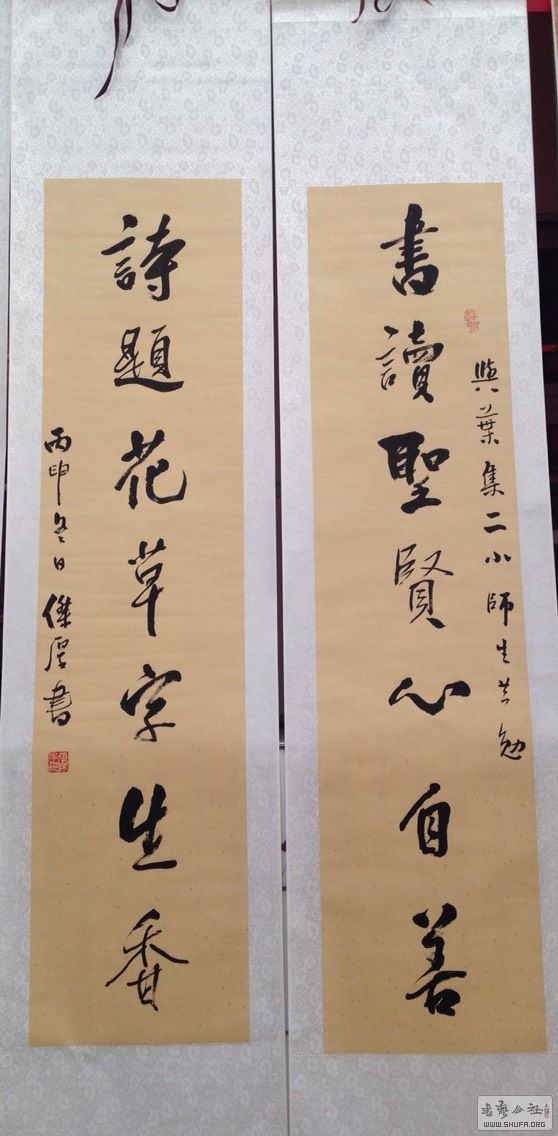 書讀聖賢心自善
與葉集二小師生共勉
詩題花草字生香
丙申冬日傑厚書
書藝公社
WWW.SHUFA.ORG